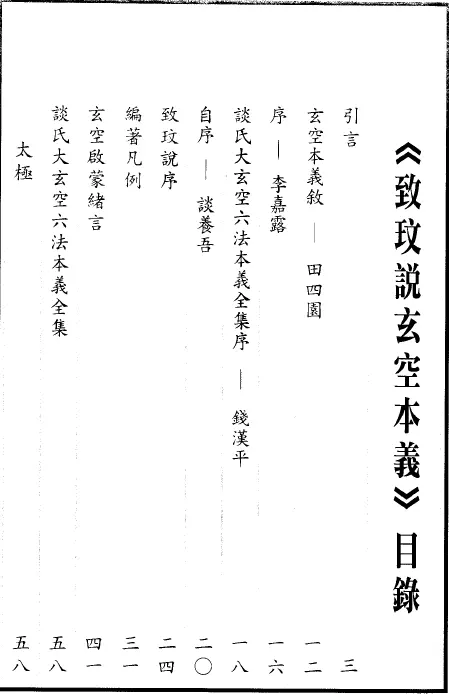 《致玟説玄空本義》目錄
引言 三
玄空本義敘 — 田四園 一二
序 — 李嘉露 一六
談氏大玄空六法本義全集序 — 錢漢平 一八
自序 — 談養吾 二〇
致玟說序 二四
編著凡例 三一
玄空啟蒙緒言 四一
談氏大玄空六法本義全集 五八
太極 五八